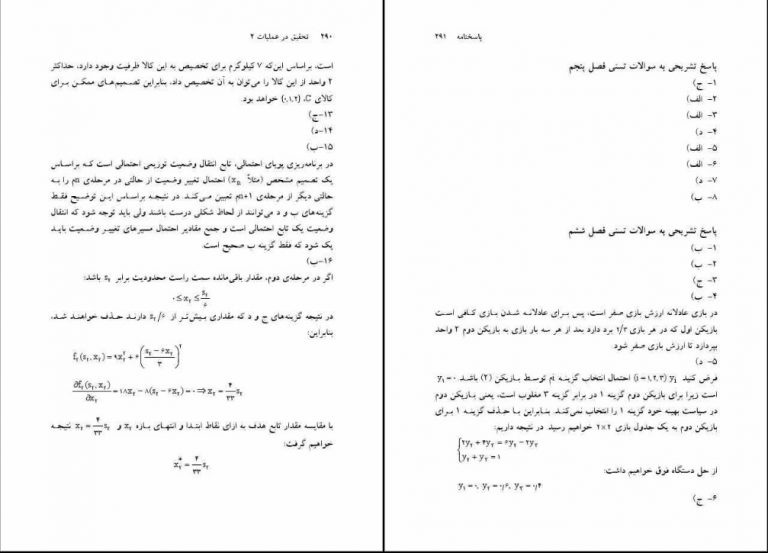 ۲۹۰ تحقیق در عملیات ۲
است، براساس این‌که ۷ کیلوگرم برای تخصیص به این کالا ظرفیت وجود دارد، حداکثر
۲ واحد از این کالا را می‌توان به آن تخصیص داد، بنابراین تصمیم‌های ممکن برای
کالای C، (۰,۱,۲) خواهد بود.
۱۳-ج)
۱۴-د)
۱۵-ب)
در برنامه‌ریزی پویای احتمالی، تابع انتقال وضعیت توزیعی احتمالی است که براساس
یک تصمیم مشخص (مثلاً xₙ) احتمال تغییر وضعیت از حالتی در مرحله‌ی n‌ام را به
حالتی دیگر از مرحله‌ی n+۱ام تعیین می‌کند. در نتیجه براساس این توضیح فقط
گزینه‌های ب و د می‌توانند از لحاظ شکلی درست باشند ولی باید توجه شود که انتقال
وضعیت یک تابع احتمالی است و جمع مقادیر احتمال مسیرهای تغییر وضعیت باید
یک شود که فقط گزینه ب صحیح است.
۱۶-ب)
اگر در مرحله‌ی دوم، مقدار باقی‌مانده سمت راست محدودیت برابر s₂ باشد:
۰ ≤ x₂ ≤ s₂/۶
در نتیجه گزینه‌های ج و د که مقداری بیش‌تر از s₂/۶ دارند حذف خواهند شد،
بنابراین:
f₂(s₂, x₂) = ۹x₂² + ۶((s₂ − ۶x₂)/۳)²
∂f₂(s₂, x₂)/∂x₂ = ۱۸x₂ − ۸(s₂ − ۶x₂) = ۰ ⇒ x₂ = ۴/۳۳ s₂
با مقایسه مقدار تابع هدف به ازای نقاط ابتدا و انتهای بازه x₂ و x₂ = ۴/۳۳ s₂ نتیجه
خواهیم گرفت:
x₂* = ۴/۳۳ s₂
پاسخنامه ۲۹۱
پاسخ تشریحی به سوالات تستی فصل پنجم
۱- ج)
۲- الف)
۳- الف)
۴- د)
۵- الف)
۶- الف)
۷- د)
۸- ب)
پاسخ تشریحی به سوالات تستی فصل ششم
۱- ب)
۲- ب)
۳- ج)
۴- ب)
در بازی عادلانه ارزش بازی صفر است، پس برای عادلانه شدن بازی کافی است
بازیکن اول که در هر بازی ۲/۳ برد دارد بعد از هر سه بار بازی به بازیکن دوم ۲ واحد
بپردازد تا ارزش بازی صفر شود.
۵- د)
فرض کنید yᵢ (i = ۱,۲,۳) احتمال انتخاب گزینه i‌ام توسط بازیکن (۲) باشند. y₁ = ۰
است زیرا برای بازیکن دوم گزینه ۱ در برابر گزینه ۳ مغلوب است، یعنی بازیکن دوم
در سیاست بهینه خود گزینه ۱ را انتخاب نمی‌کند. بنابراین با حذف گزینه ۱ برای
بازیکن دوم به یک جدول بازی ۲×۲ خواهیم رسید. در نتیجه داریم:
۲y₂ + ۴y₃ = ۶y₂ − ۲y₃
y₂ + y₃ = ۱
از حل دستگاه فوق خواهیم داشت:
y₁ = ۰, y₂ = ۰/۶, y₃ = ۰/۴
۶- ج)